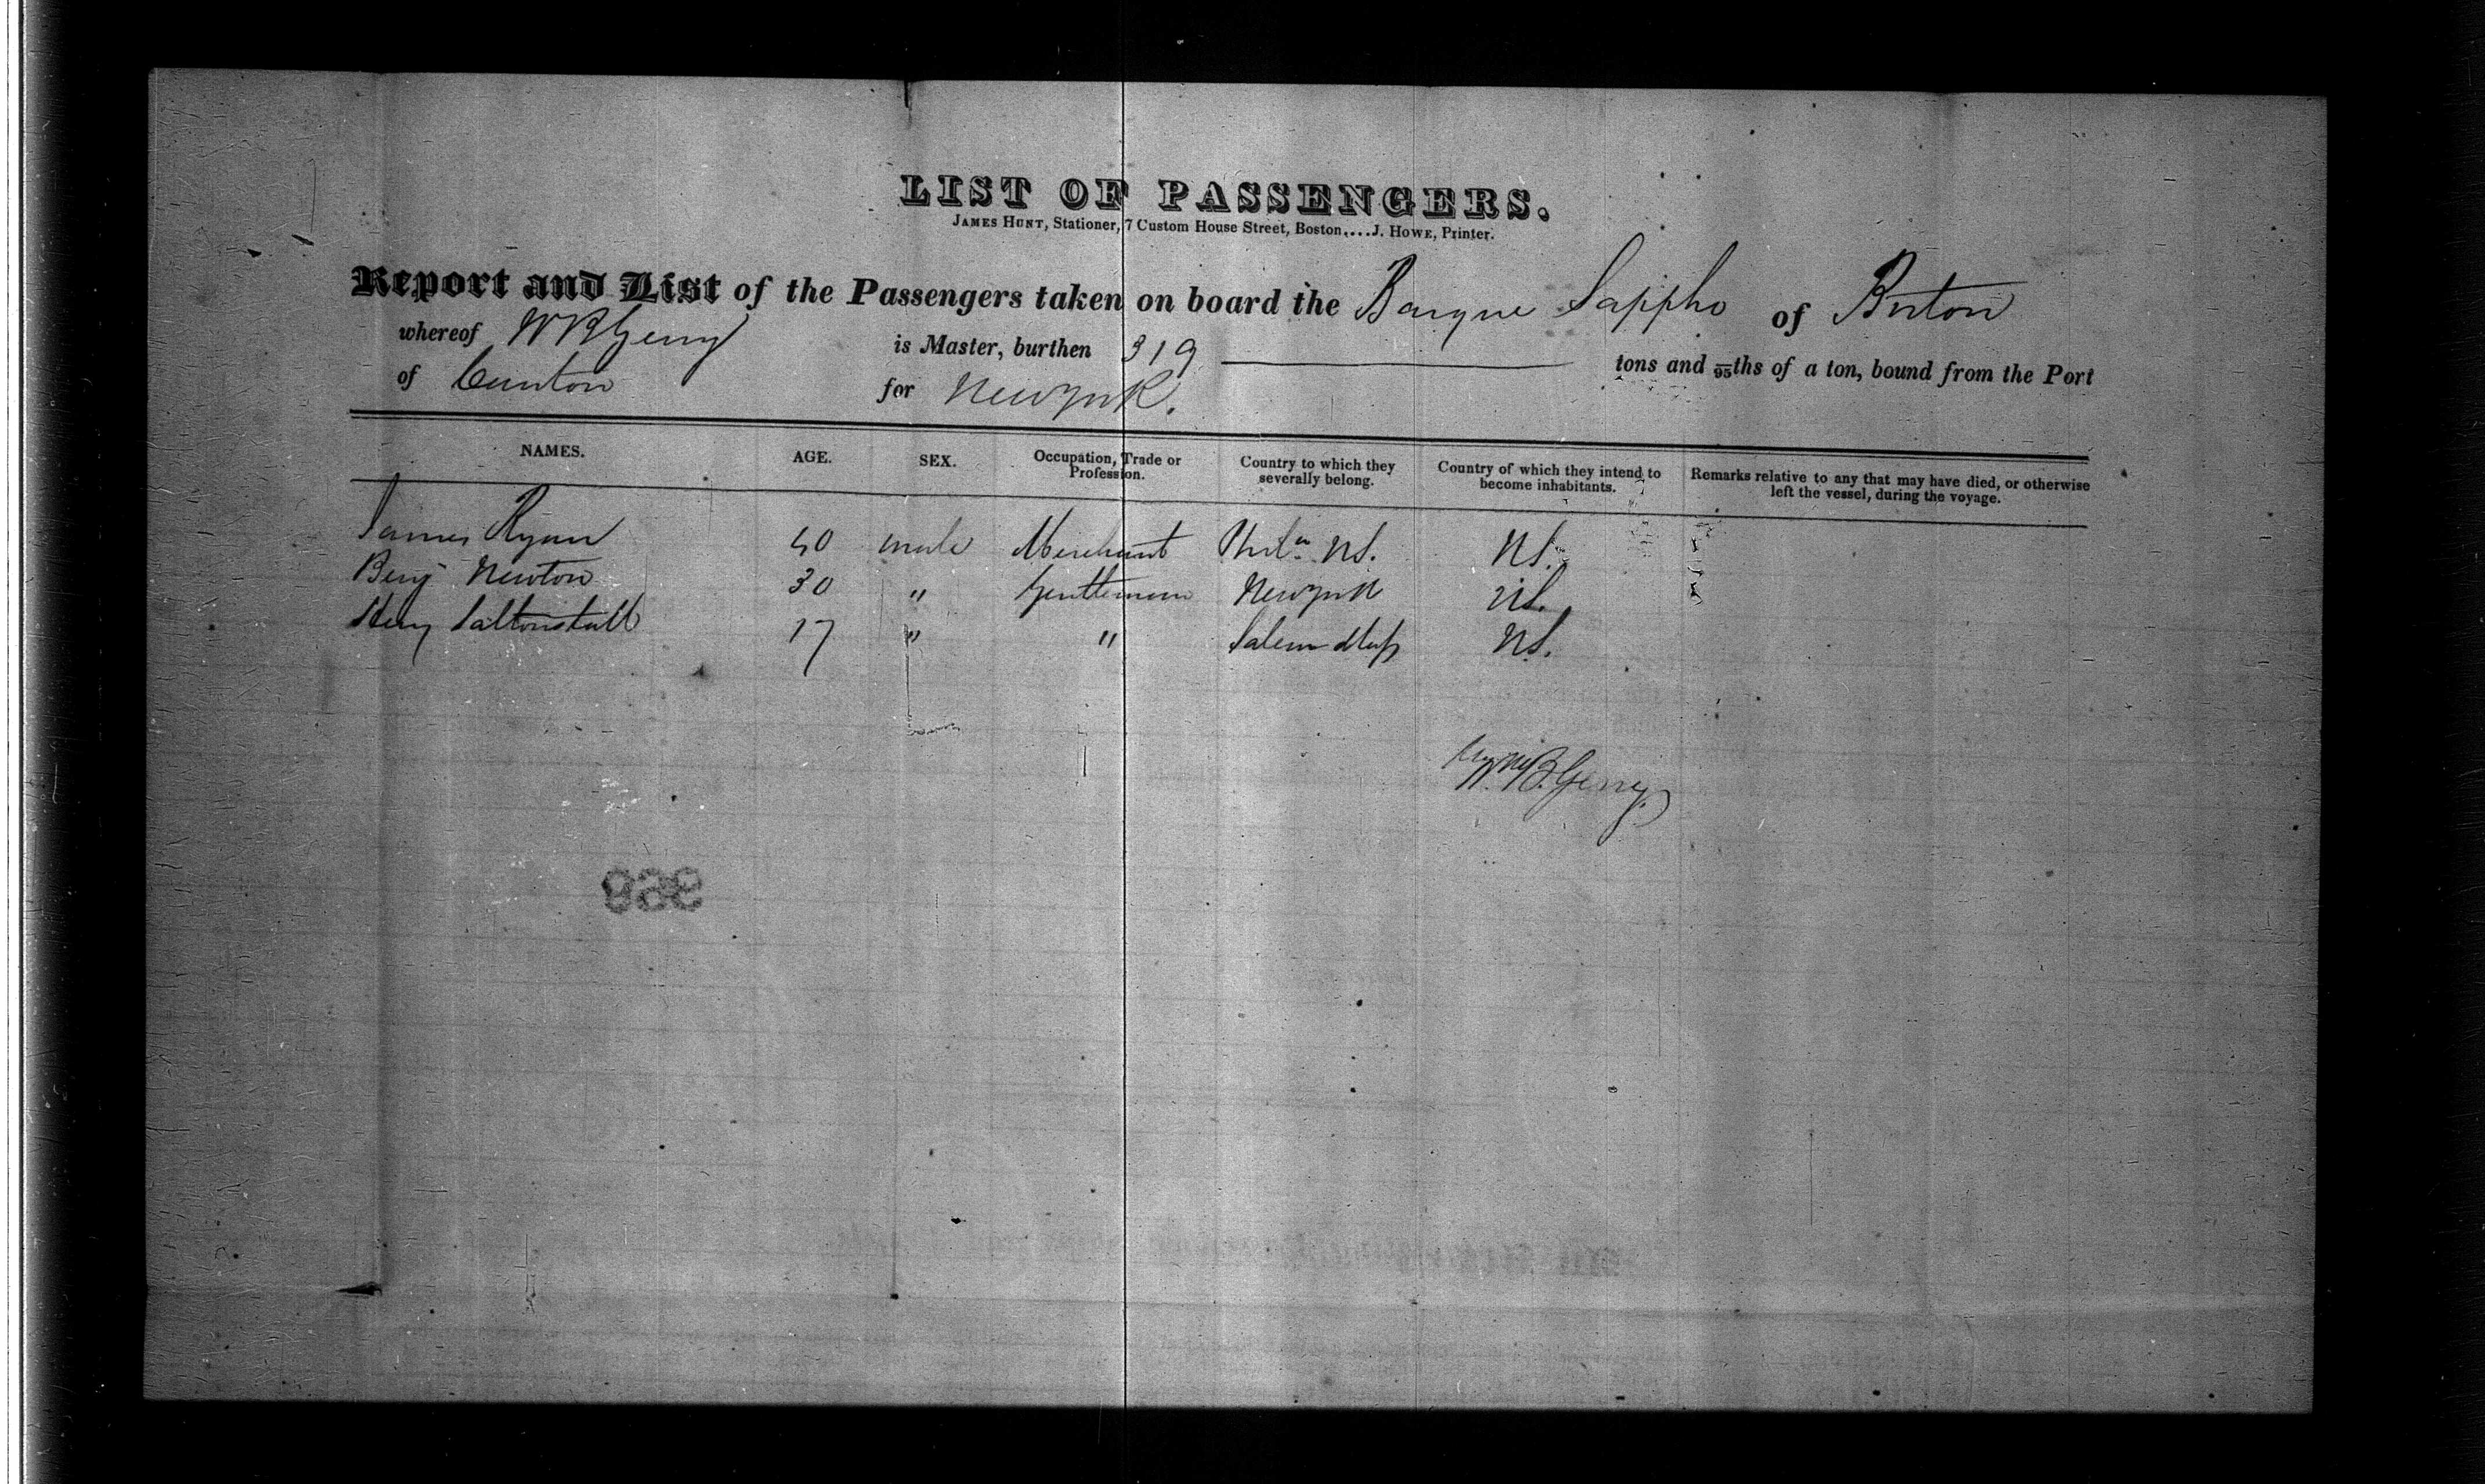 LIST OF PASSENGERS.
JAMES HUNT, Stationer, 7 Custom House Street, Boston....J. HOWE, Printer.
Report and List of the Passengers taken on board the Barque Sappho of Boston
whereof W B Gerry is Master, burthen 319 tons and 95ths of a ton, bound from the Port
of Canton for New York.
NAMES. AGE. SEX. Occupation, Trade or Profession. Country to which they severally belong. Country of which they intend to become inhabitants. Remarks relative to any that may have died, or otherwise left the vessel, during the voyage.
James Ryan 40 male Merchant Phila. US. US.
Benj Newton 30 " Gentleman New York US.
Henry Saltonstall 17 " " Salem Mass US.
W. B. Gerry.
938